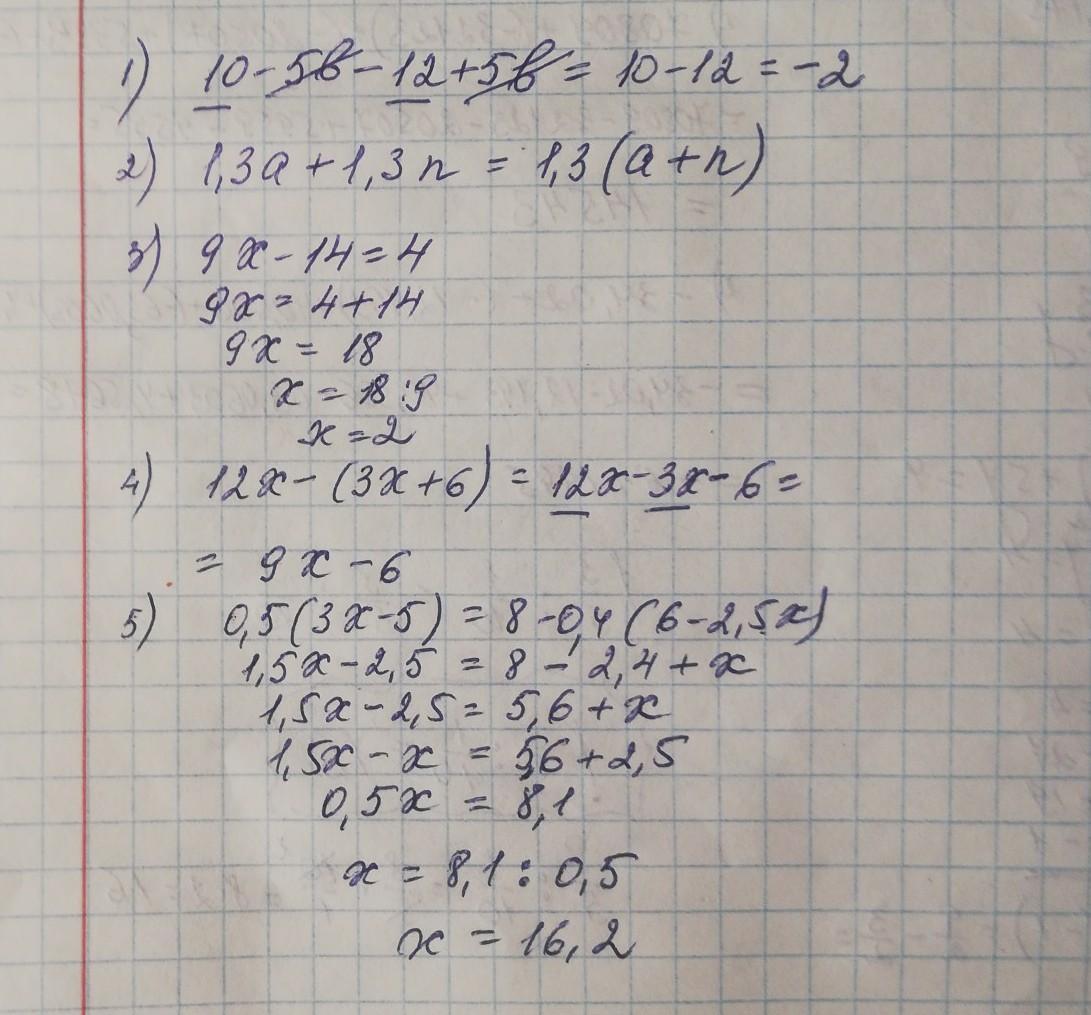 1) 10-5в-12+5в = 10-12 = -2
2) 1,3a + 1,3n = 1,3(a+n)
3) 9x-14=4
9x = 4+14
9x = 18
x = 18:9
x=2
4) 12x-(3x+6) = 12x-3x-6=
= 9x-6
5) 0,5(3x-5) = 8-0,4(6-2,5x)
1,5x-2,5 = 8-2,4+x
1,5x-2,5 = 5,6+x
1,5x-x = 5,6+2,5
0,5x = 8,1
x = 8,1:0,5
x = 16,2